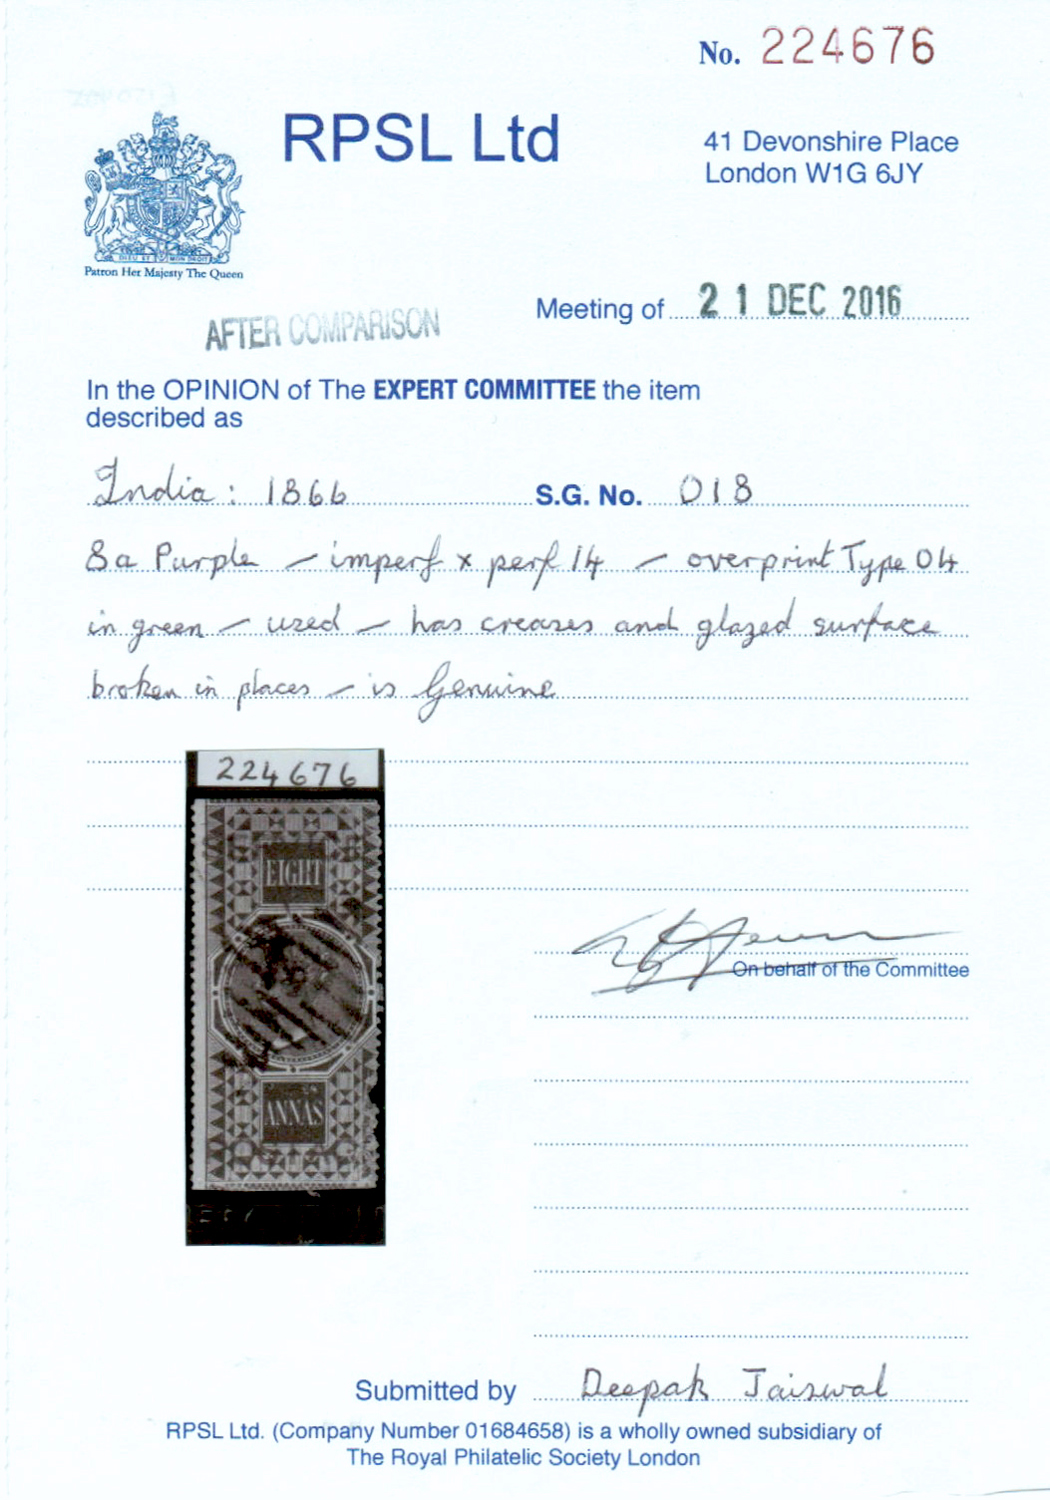 No. 224676
RPSL Ltd
41 Devonshire Place
London W1G 6JY
DIEU ET MON DROIT
Patron Her Majesty The Queen
Meeting of 21 DEC 2016
AFTER COMPARISON
In the OPINION of The EXPERT COMMITTEE the item
described as
India: 1866 S.G. No. 018
8a Purple – imperf x perf 14 – overprint Type 04
in green – used – has creases and glazed surface
broken in places – is Genuine
224676
EIGHT
ANNAS
On behalf of the Committee
Submitted by Deepak Jaiswal
RPSL Ltd. (Company Number 01684658) is a wholly owned subsidiary of
The Royal Philatelic Society London